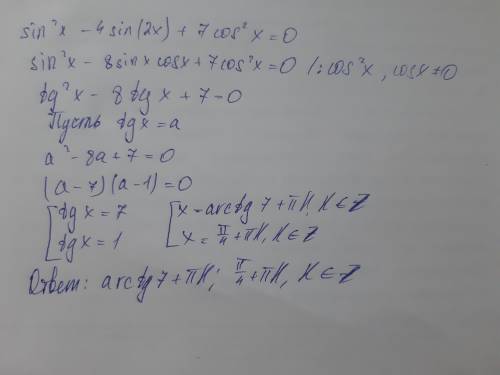 sin²x - 4 sin(2x) + 7 cos²x = 0
sin²x - 8 sinx cosx + 7 cos²x = 0 /: cos²x, cosx ≠ 0
tg²x - 8 tg x + 7 - 0
Пусть tg x = a
a² - 8a + 7 = 0
(a - 7)(a - 1) = 0
[tg x = 7 [x = arctg 7 + πК, К ∈ Z
[tg x = 1 [x = π/4 + πК, К ∈ Z
Ответ: arctg 7 + πК; π/4 + πК, К ∈ Z